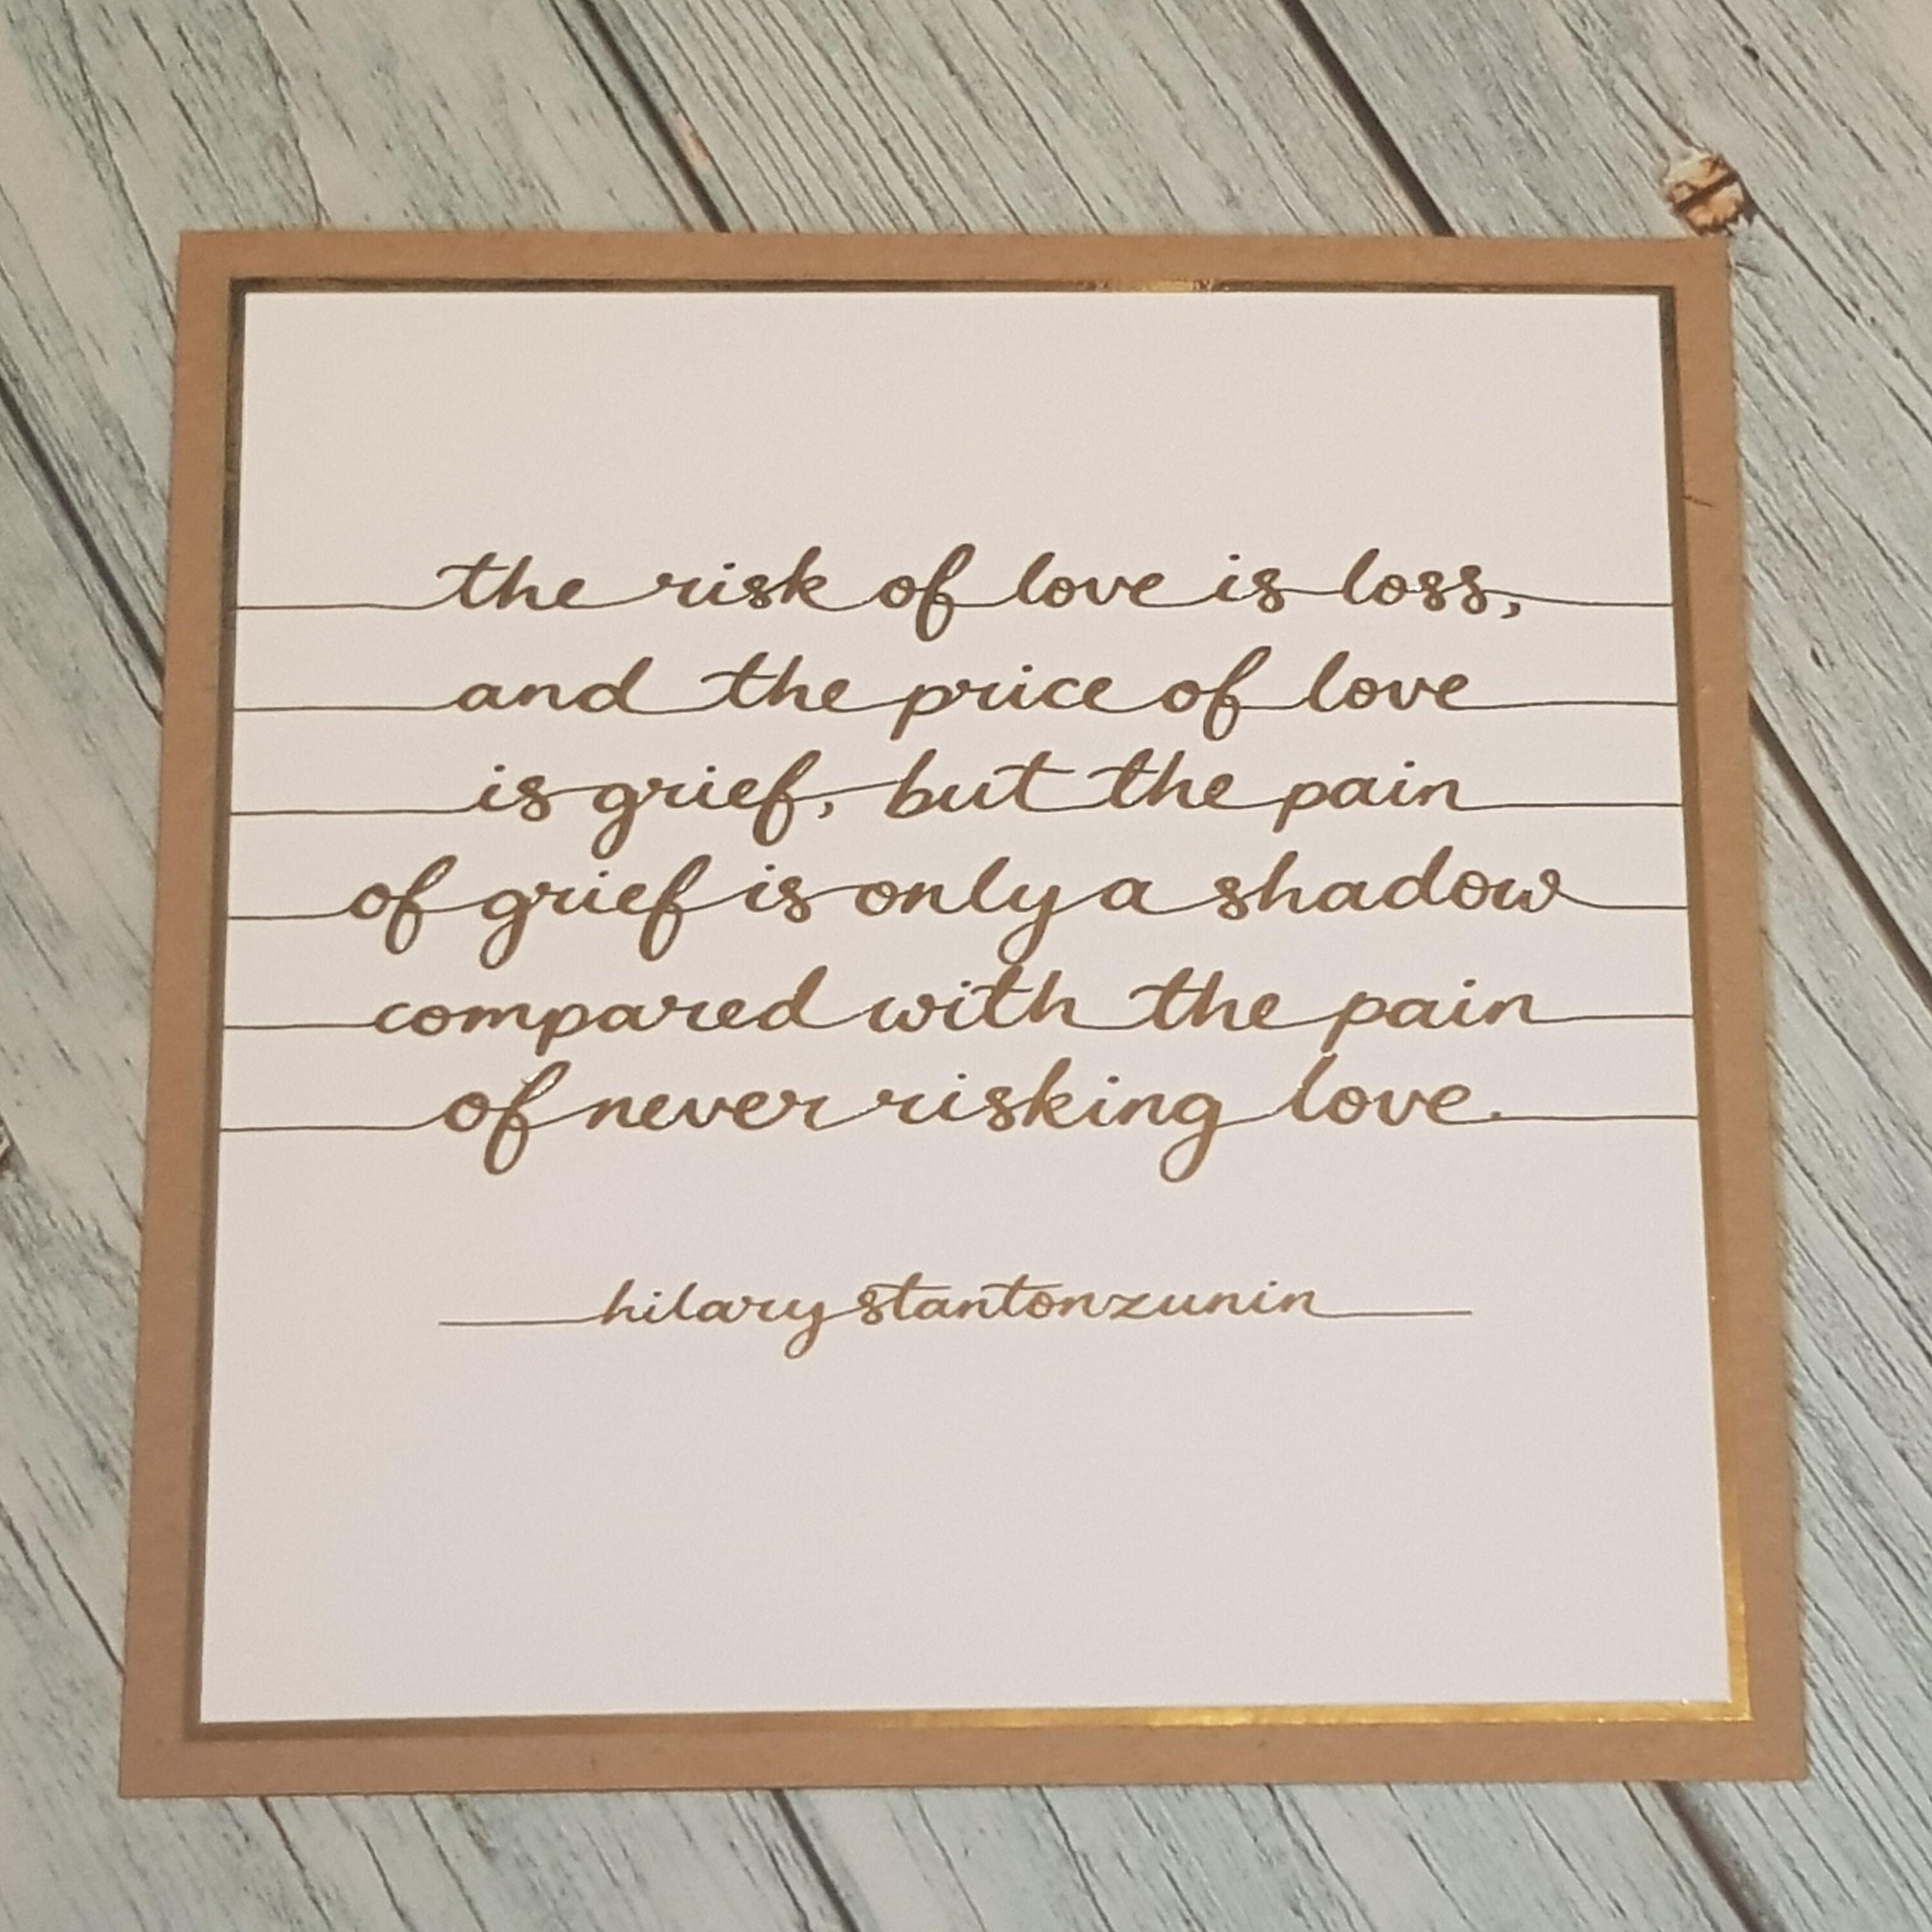 the risk of love is loss,
and the price of love
is grief, but the pain
of grief is only a shadow
compared with the pain
of never risking love.
hilary stanton zunin